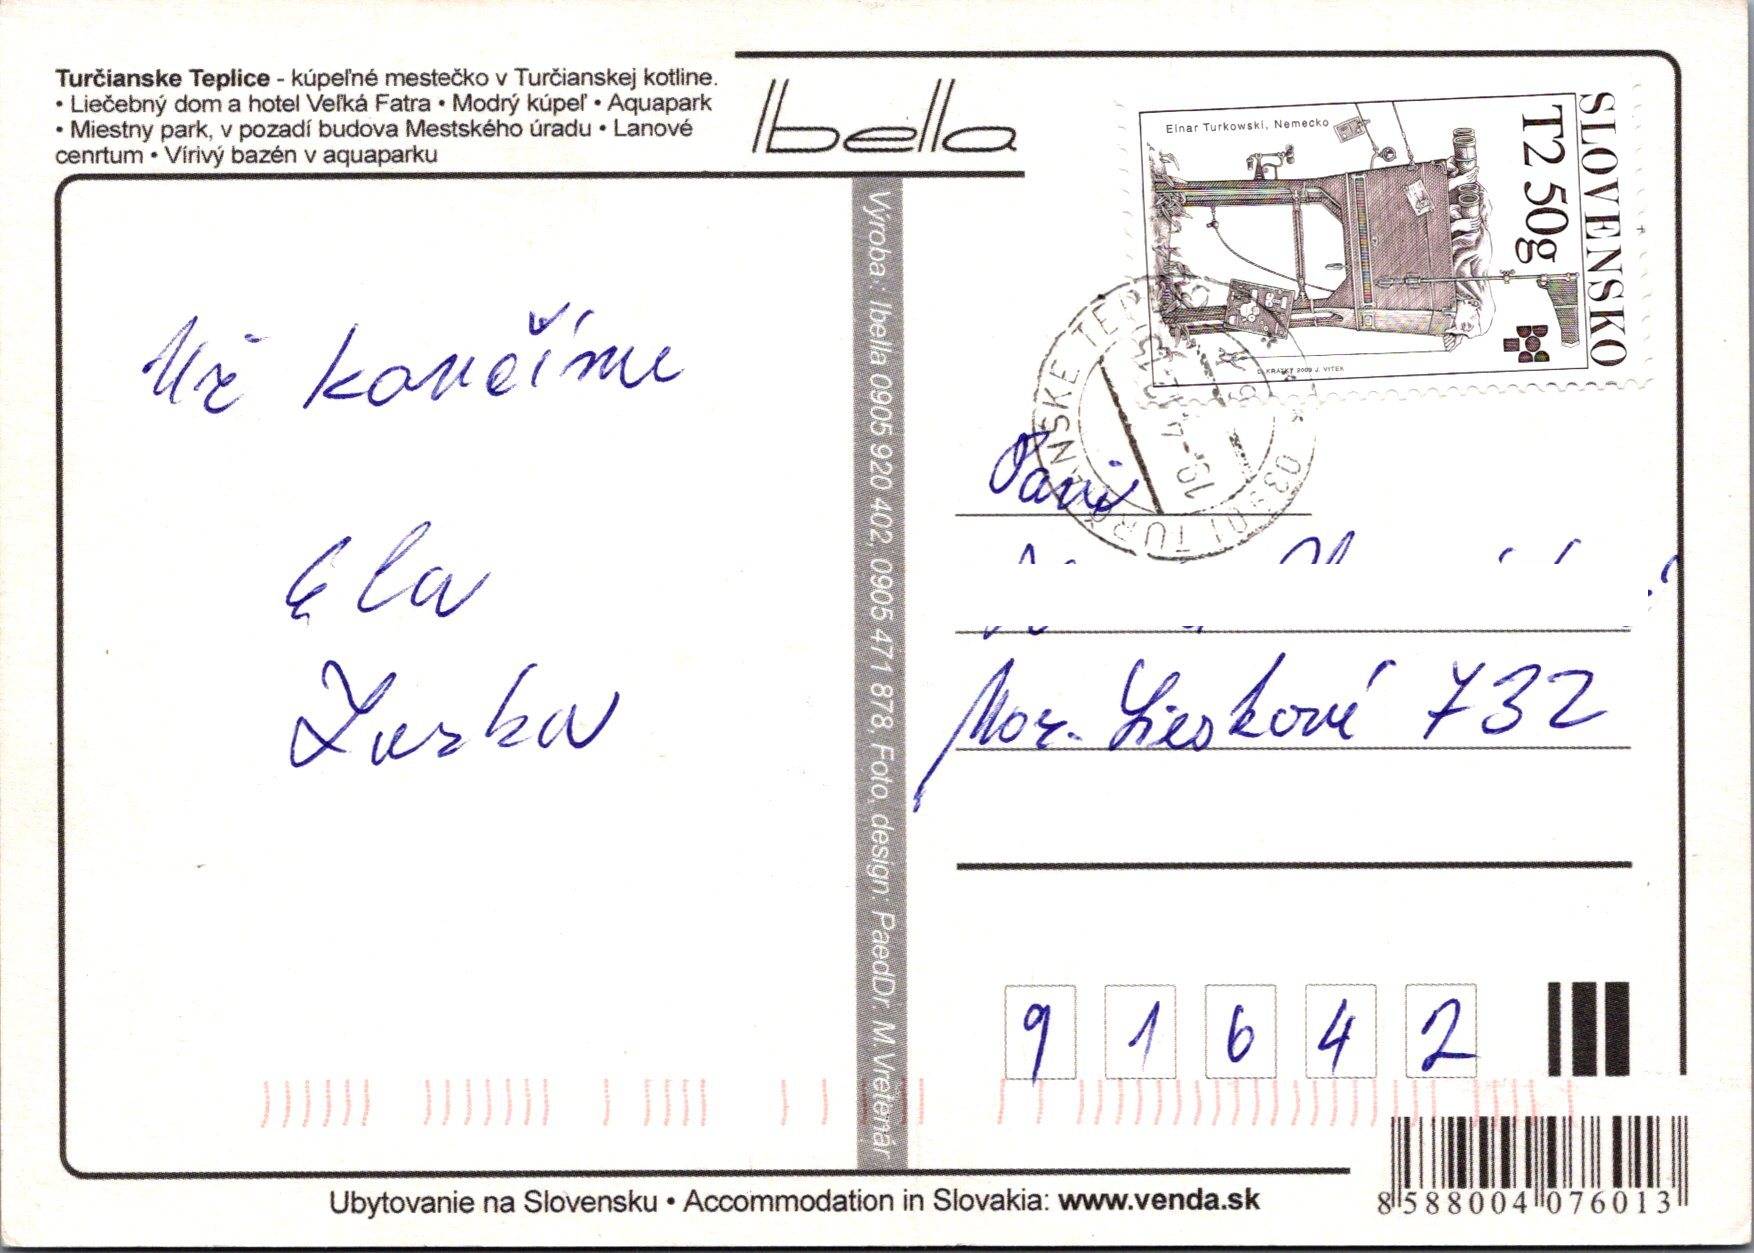 Turčianske Teplice - kúpeľné mestečko v Turčianskej kotline.
• Liečebný dom a hotel Veľká Fatra • Modrý kúpeľ • Aquapark
• Miestny park, v pozadí budova Mestského úradu • Lanové
cenrtum • Vírivý bazén v aquaparku
Ibella
Einar Turkowski, Nemecko
SLOVENSKO
T2 50g
D. KRÁTKY 2009 J. VITEK
TURČIANSKE TEPLICE
039 01
Už končíme
Ela
Zuzka
Výroba: Ibella 0905 920 402, 0905 471 878, Foto, design: PaedDr. M.Vreтenár
Pani
Mor. Lieskové 732
9 1 6 4 2
8 588004 076013
Ubytovanie na Slovensku • Accommodation in Slovakia: www.venda.sk